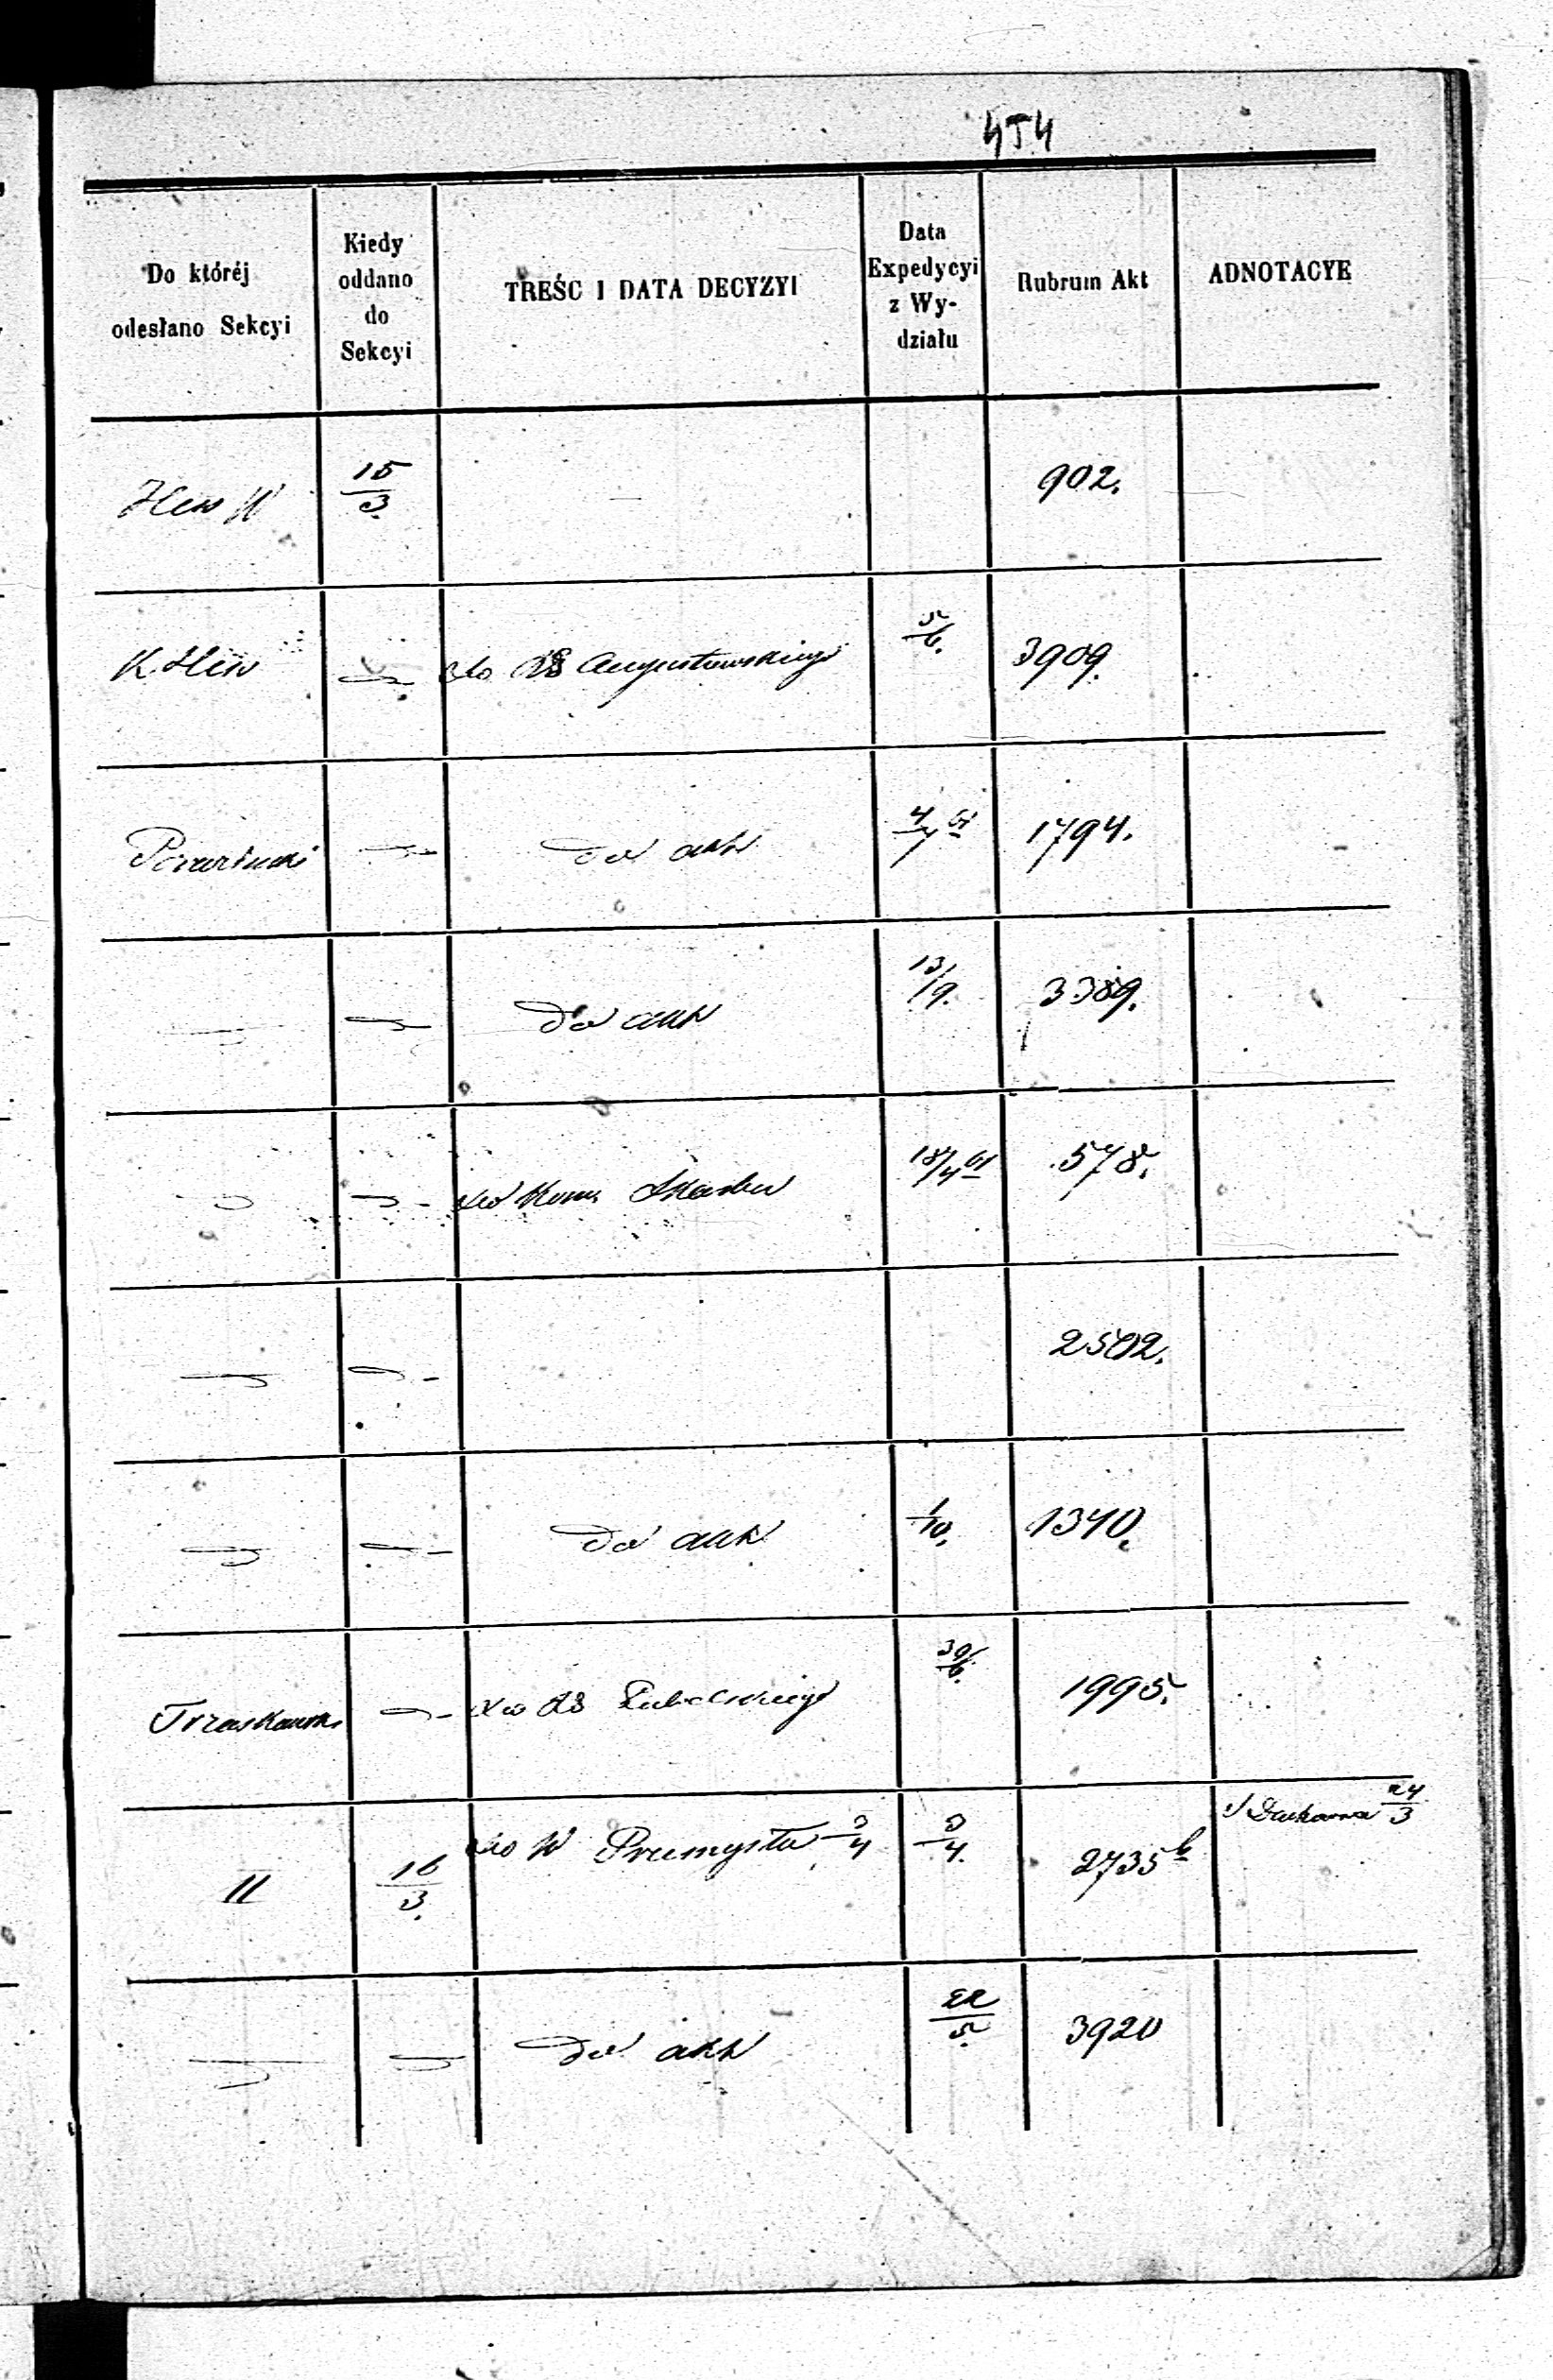 454
Do któréj odesłano Sekcyi
Kiedy oddano do Sekcyi
TREŚC I DATA DECYZYI
Data Expedycyi z Wy- działu
Rubrum Akt
ADNOTACYE
15/3 902.
do RG Augustowskiego 5/6. 3909.
do akt 4/4 61 1794.
do akt 13/9. 3389.
do Kom. Skarbu 18/4 61 578.
2502.
do akt 1/10. 1340.
Trzaskowski do RG Lubelskiego 30/6. 1995.
II 16/3. do W Przemysłu 3/4 3/4. 2735 b Drukarnia 24/3
do akt 22/5. 3920